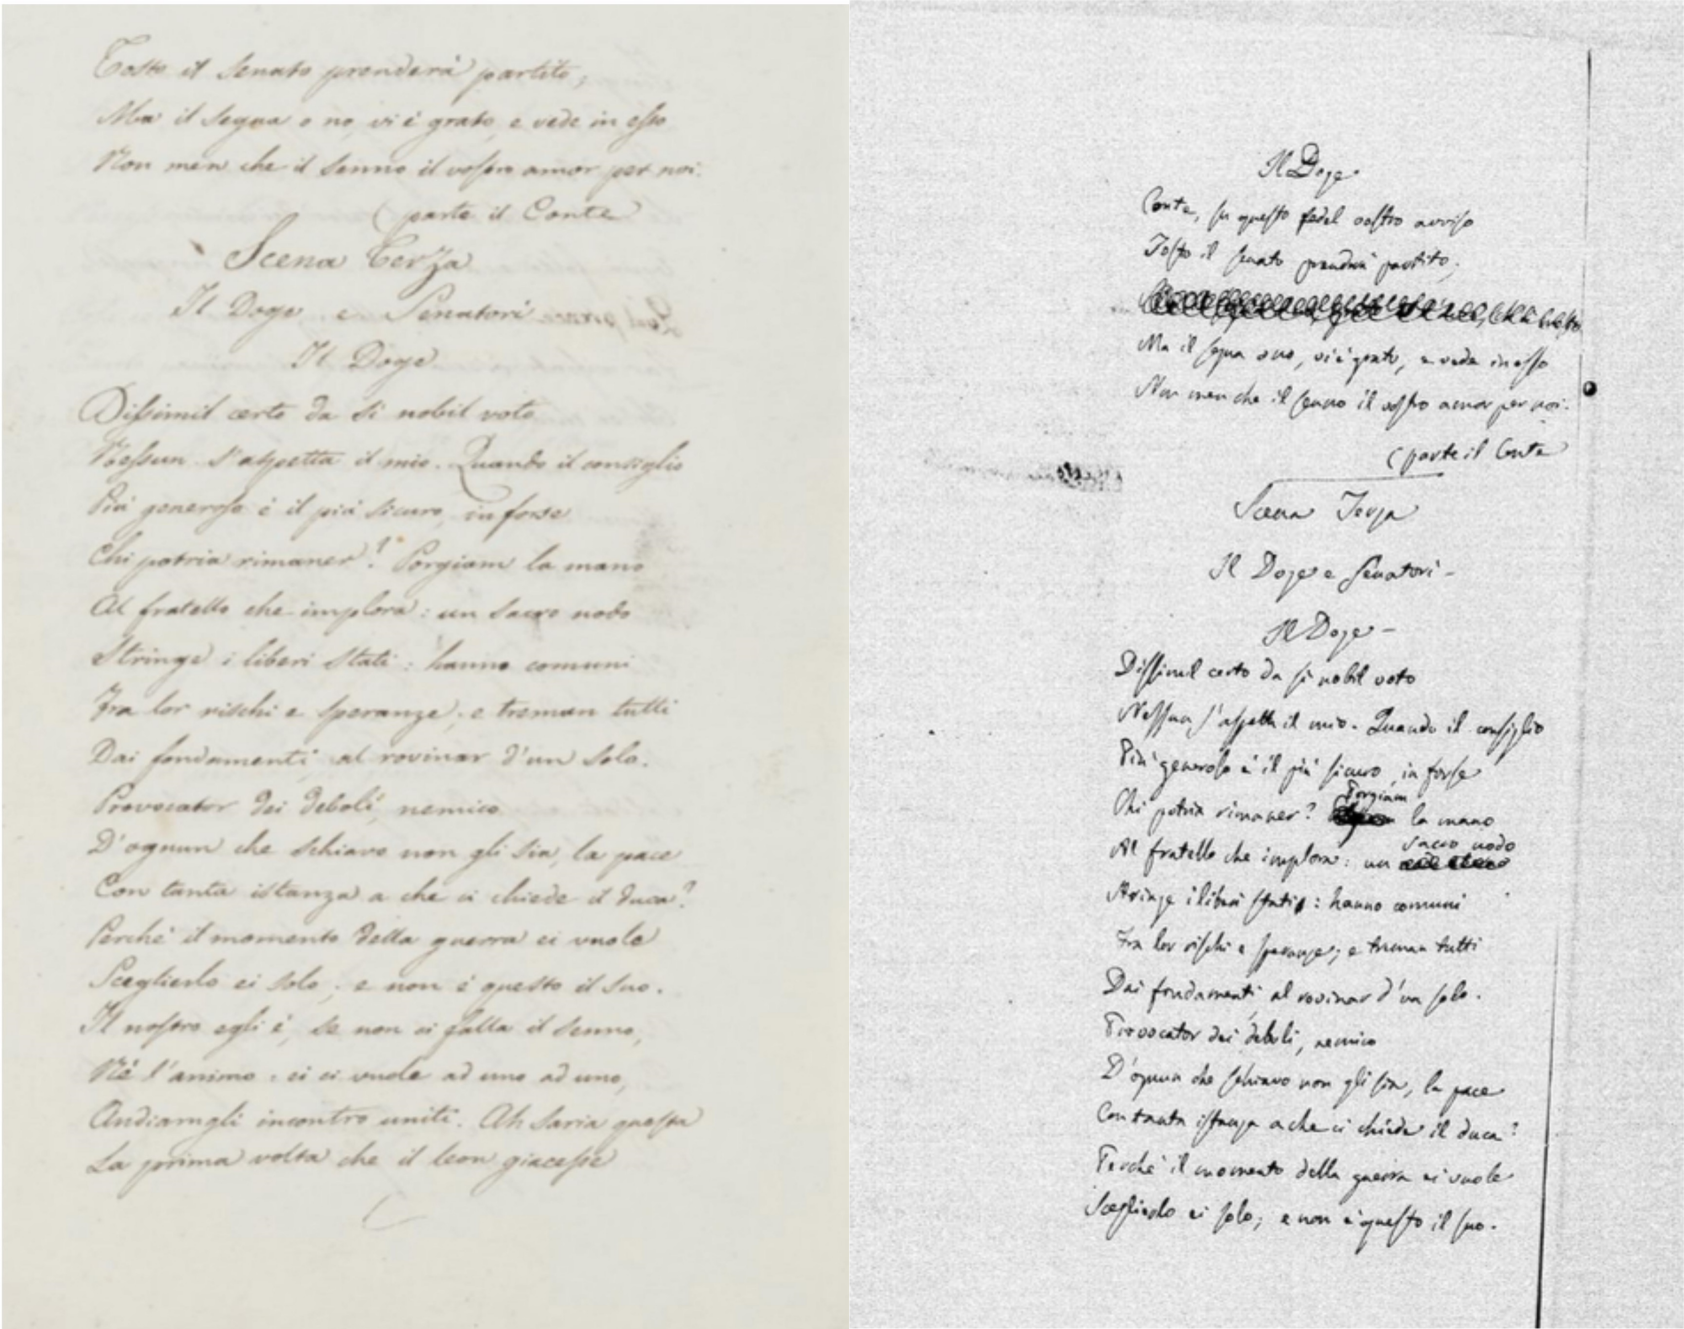 Tosto il Senato prenderà partito;
Ma il segua o no, vi è grato, e vede in esso
Non men che il senno il vostro amor per noi.
(parte il Conte
Scena Terza
Il Doge e Senatori
Il Doge
Dissimil certo da sì nobil voto
Nessun s'aspetta il mio. Quando il consiglio
Più generoso è il più sicuro, in forse
Chi potria rimaner? Porgiam la mano
Al fratello che implora: un sacro nodo
Stringe i liberi stati: hanno comuni
Fra lor rischi e speranze; e treman tutti
Dai fondamenti, al rovinar d'un solo.
Provocator dei deboli, nemico
D'ognun che schiavo non gli sia, la pace
Con tanta istanza a che ci chiede il duca?
Perchè il momento della guerra ei vuole
Sceglierlo ei solo; e non è questo il suo.
Il nostro egli è, se non ci falla il senno,
Nè l'animo: ei ci vuole ad uno ad uno,
Andiamgli incontro uniti. Ah saria questa
La prima volta che il leon giacesse
Il Doge
Conte, su questo fedel vostro avviso
Tosto il senato prenderà partito;
Ma il segua o no, vi è grato, e vede in esso
Non men che il senno il vostro amor per noi.
(parte il Conte
Scena Terza
Il Doge e Senatori -
Il Doge -
Dissimil certo da sì nobil voto
Nessun s'aspetta il mio. Quando il consiglio
Più generoso è il più sicuro, in forse
Chi potria rimaner? Porgiam la mano
Al fratello che implora: un sacro nodo
Stringe i liberi stati: hanno comuni
Fra lor rischi e speranze; e treman tutti
Dai fondamenti, al rovinar d'un solo.
Provocator dei deboli, nemico
D'ognun che schiavo non gli sia, la pace
Con tanta istanza a che ci chiede il duca?
Perchè il momento della guerra ei vuole
Sceglierlo ei solo; e non è questo il suo.